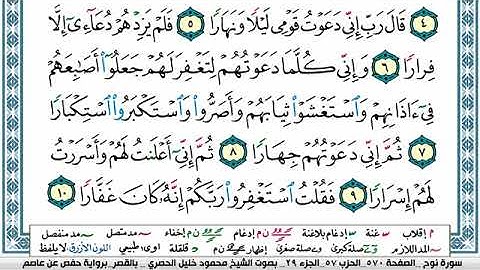 ٤ قَالَ رَبِّ إِنِّي دَعَوْتُ قَوْمِي لَيْلًا وَنَهَارًا ٥ فَلَمْ يَزِدْهُمْ دُعَآءِيٓ إِلَّا
فِرَارًا ٦ وَإِنِّي كُلَّمَا دَعَوْتُهُمْ لِتَغْفِرَ لَهُمْ جَعَلُوٓا۟ أَصَٰبِعَهُمْ
فِيٓ ءَاذَانِهِمْ وَٱسْتَغْشَوْا۟ ثِيَابَهُمْ وَأَصَرُّوا۟ وَٱسْتَكْبَرُوا۟ ٱسْتِكْبَارًا
٧ ثُمَّ إِنِّي دَعَوْتُهُمْ جِهَارًا ٨ ثُمَّ إِنِّيٓ أَعْلَنتُ لَهُمْ وَأَسْرَرْتُ
لَهُمْ إِسْرَارًا ٩ فَقُلْتُ ٱسْتَغْفِرُوا۟ رَبَّكُمْ إِنَّهُۥ كَانَ غَفَّارًا ١٠
م إقلاب غنة إدغام بلاغنة ن م إدغام ن م إخفاء مد متصل مد منفصل
مد اللازم صلة كبرى وصلة صغرى إظهار ن م قلقلة اوى طبيعي اللون الأزرق لا يلفظ
سورة نوح _ الصفحة ٥٧٠ _ الحزب ٥٧ _ الجزء ٢٩ _ بصوت الشيخ محمود خليل الحصري _ بالقصر_برواية حفص عن عاصم